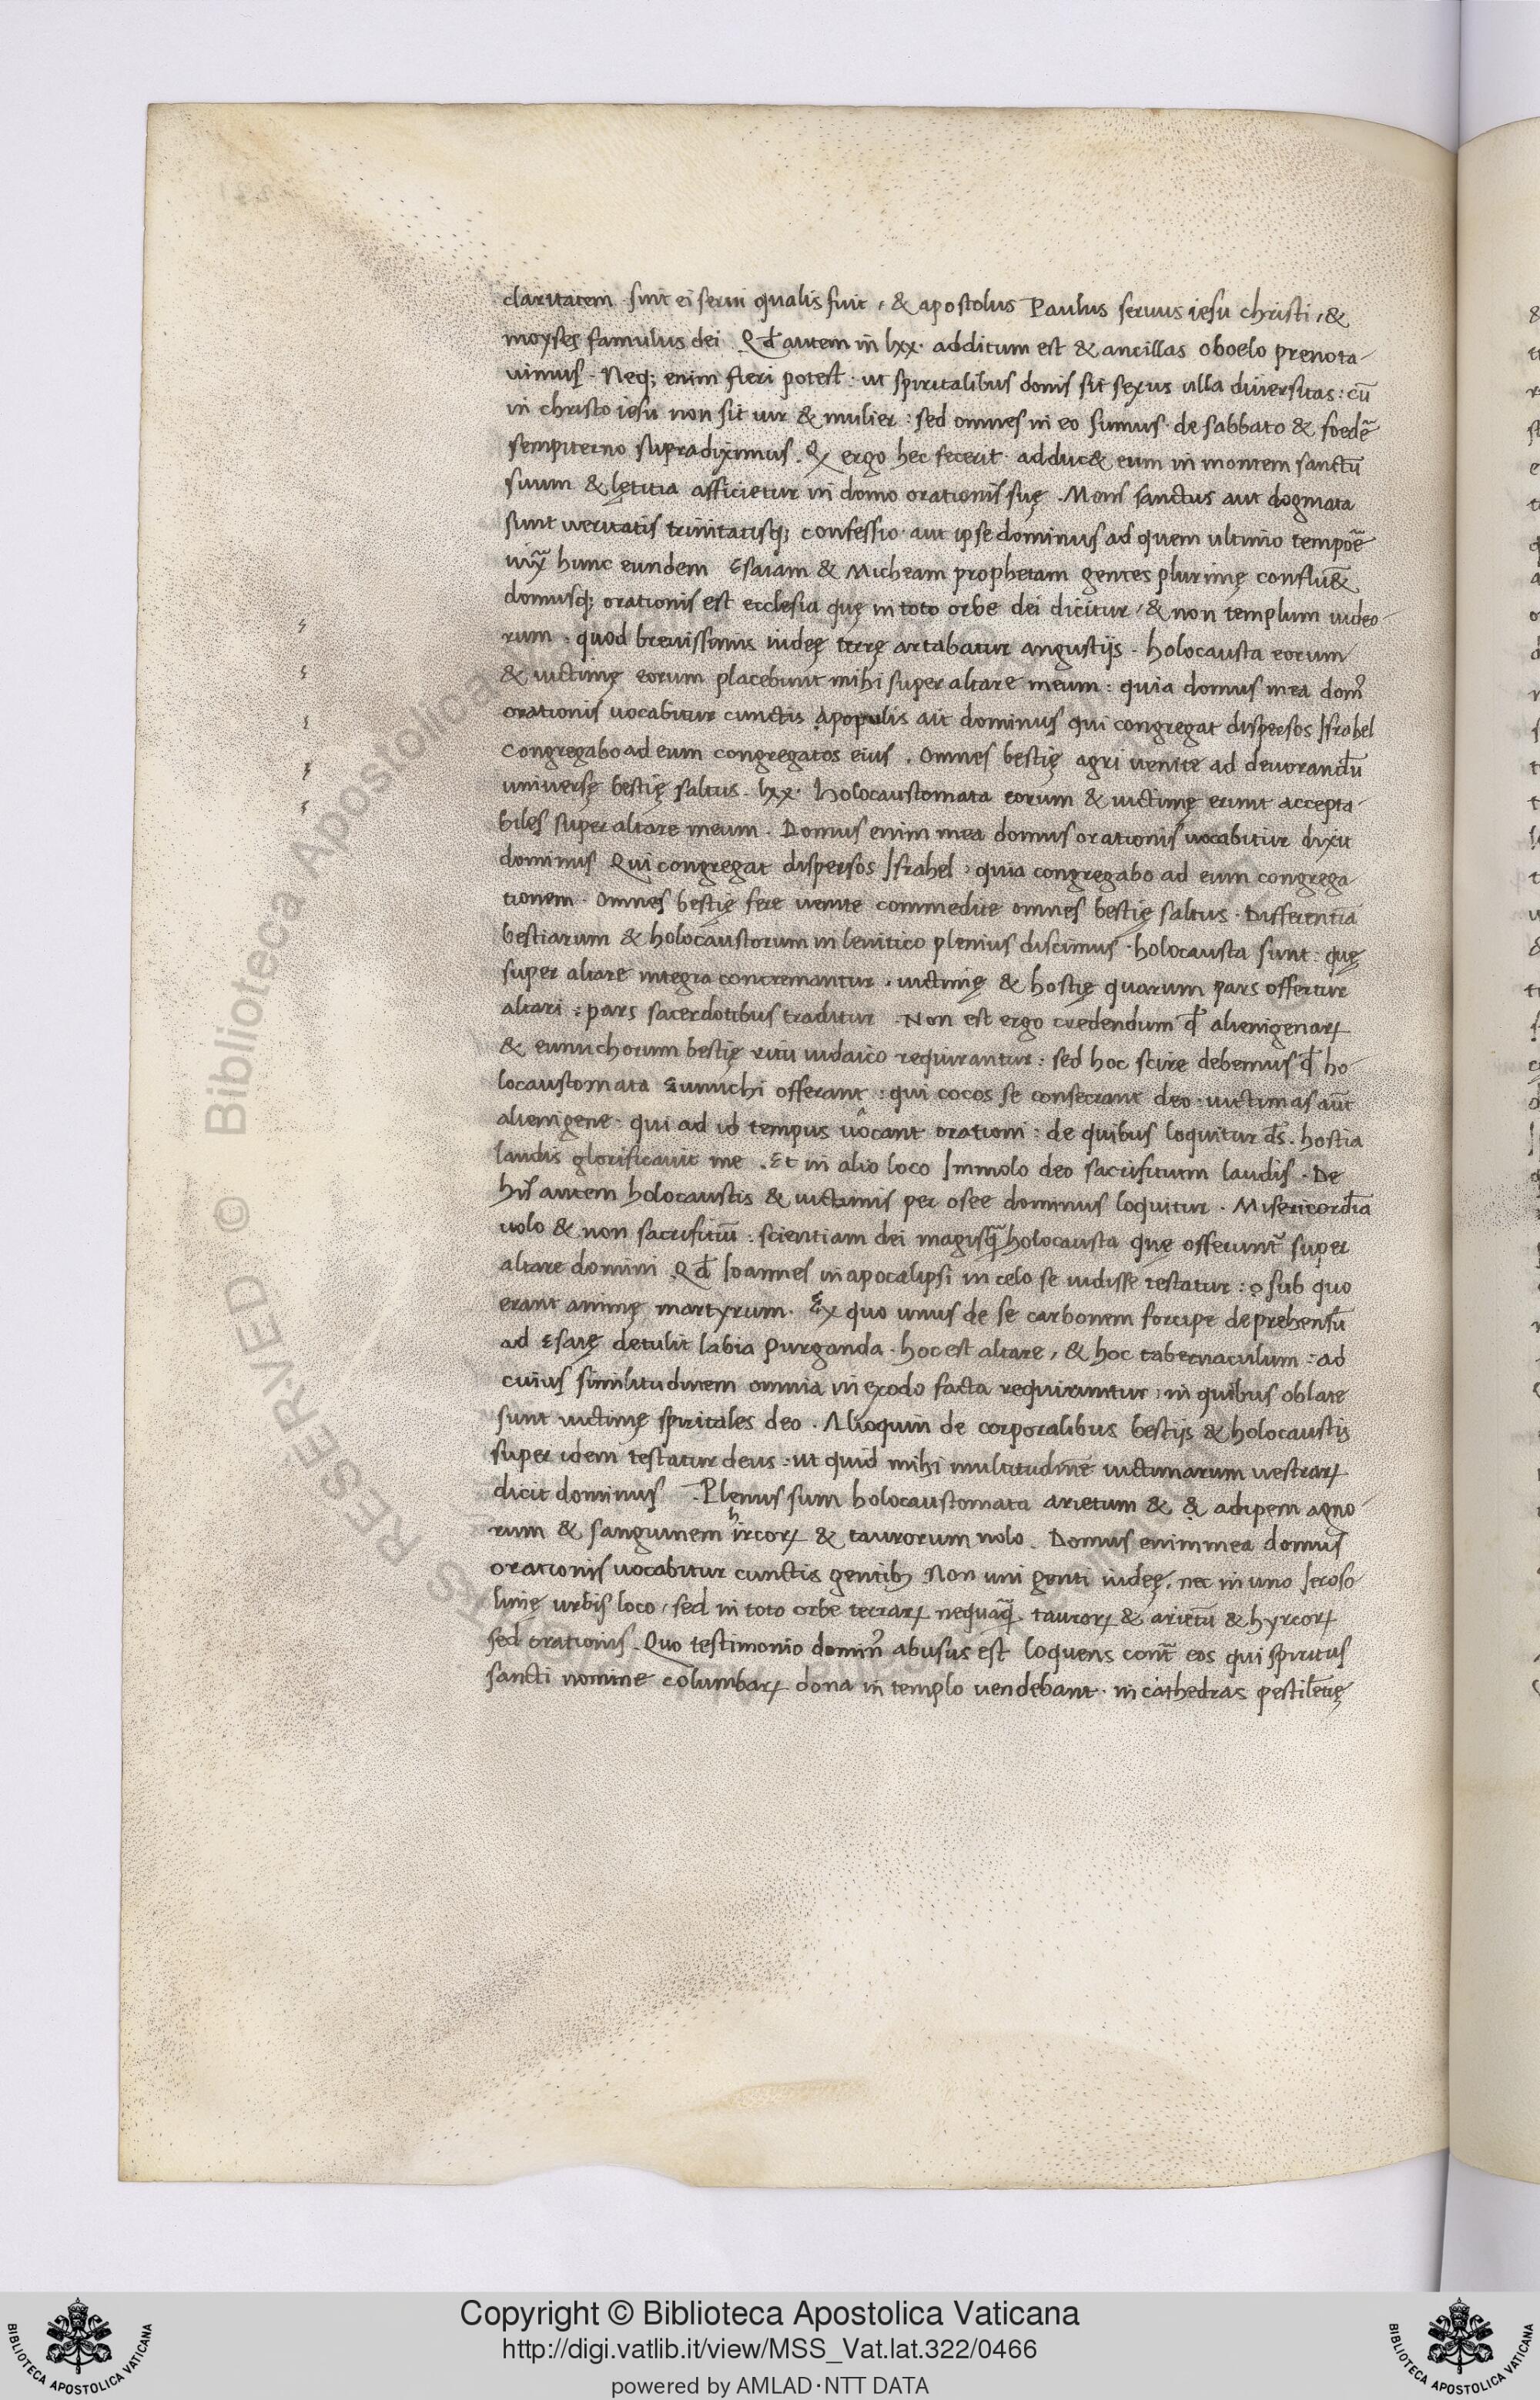 claritatem sint ei serui qualis fuit, & apostolus Paulus seruus iesu christi, &
moyses famulus dei. Qđ autem in lxx. additum est & ancillas oboelo prenota
uimus. Neq; enim fieri potest: ut spiritalibus donis sit sexus ulla diuersitas: cū
in christo iesu non sit uir & mulier: sed omnes in eo sumus. de sabbato & foedē
sempiterno supradiximus. Q ergo hec fecerit adduc& eum in montem sanctū
suum & lętitia afficietur in domo orationis suę. Mons sanctus aut dogmata
sunt ueritatis trinitatisq; confessio. aut ipse dominus ad quem ultimo tempōe
hunc eundem Esaiam & Micheam prophetam gentes plurimę conflu&
domusq; orationis est ecclesia quę in toto orbe dei dicitur, & non templum iudeo
rum. quod breuissimis iudeę terrę artabatur angustijs. holocausta eorum
& uictimę eorum placebunt mihi super altare meum: quia domus mea dom᾽
orationis uocabitur cunctis apopulis ait dominus qui congregat dispersos Israhel
Congregabo ad eum congregatos eius. Omnes bestię agri uenite ad deuorandū
uniuersę bestię saltus. lxx. Holocaustomata eorum & uictimę erunt accepta
biles super altare meum. Domus enim mea domus orationis uocabitur dixit
dominus Qui congregat dispersos Israhel, quia congregabo ad eum congrega
tionem. Omnes bestię fere uenite commedite omnes bestię saltus. Differentia
bestiarum & holocaustorum in leuitico plenius discimus. holocausta sunt: quę
super altare integra concremantur. uictimę & hostię quarum pars offertur
altari: pars sacerdotibus traditur. Non est ergo credendum qđ alienigenarꝝ
& eunuchorum bestię ritu iudaico requirantur: sed hoc scire debemus qđ ho
locaustomata Eunuchi offerant: qui cocos se consecrant deo. uictimas aūt
alienigene. qui ad id tempus uôcant orationi: de quibus loquitur d̄s. hostia
laudis glorificauit me. Et in alio loco Immolo deo sacrifitium laudis. De
his autem holocaustis & uictimis per osee dominus loquitur. Misericordīa
uolo & non sacrifitiū: scientiam dei magisq̄ holocausta quę offerunt᷑ super
altare domini Qđ Ioannes in apocalipsi in celo se uidisse testatur: & sub quo
erant animę martyrum. Ex quo unus de se carbonem forcipe deprehensū
ad Esaię detulit labia purganda. hoc est altare, & hoc tabernaculum: ad
cuius similitudinem omnia in exodo facta requiruntur, in quibus oblate
sunt uictimę spiritales deo. Alioquin de corporalibus bestijs & holocaustis
super idem testatur deus. ut quid mihi multitudinē uictimarum uestrarꝝ
dicit dominus. Plenus sum holocaustomata arietum & & adipem agno
rum & sanguinem hircorꝝ & taurorum nolo. Domus enim mea domus
orationis uocabitur cunctis gentibꝫ Non uni genti iudeę. nec in uno Ieroso
limę urbis loco, sed in toto orbe terrarꝝ nequaq̄ taurorꝝ & arietū & hyrcorꝝ
sed orationis. Quo testimonio domin᾽ abusus est loquens cont᷑ eos qui spiritus
sancti nomine columbarꝝ dona in templo uendebant. in cathedras pestilētię
Copyright © Biblioteca Apostolica Vaticana
http://digi.vatlib.it/view/MSS_Vat.lat.322/0466
powered by AMLAD·NTT DATA